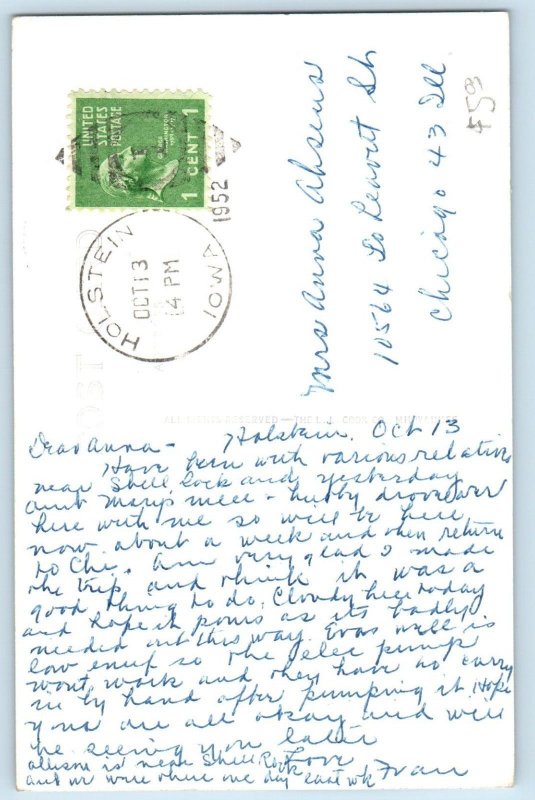 UNITED
STATES
POSTAGE
1 CENT 1
HOLSTEIN
OCT 13
4 PM
IOWA
1952
Mrs Anna Ahsens
10564 So Leavitt St
Chicago 43 Ill
ALL RIGHTS RESERVED — THE L. L. COOK CO., MILWAUKEE
Holstein, Oct 13
Dear Anna -
Have been with various relatives
near Shell Rock and yesterday
aunt Marys niece - hubby drove over
here with me so will be here
now about a week and then return
to Chi. Am very glad I made
the trip and think it was a
good thing to do. Cloudy here today
and hope it pours as its badly
needed out this way. Evas well is
low enuf so the elec pump
wont work and they have to carry
in by hand after pumping it. Hope
you are all okay and will
be seeing you later
Love
Fran
Allison is near Shell Rock
and we were there one day last wk